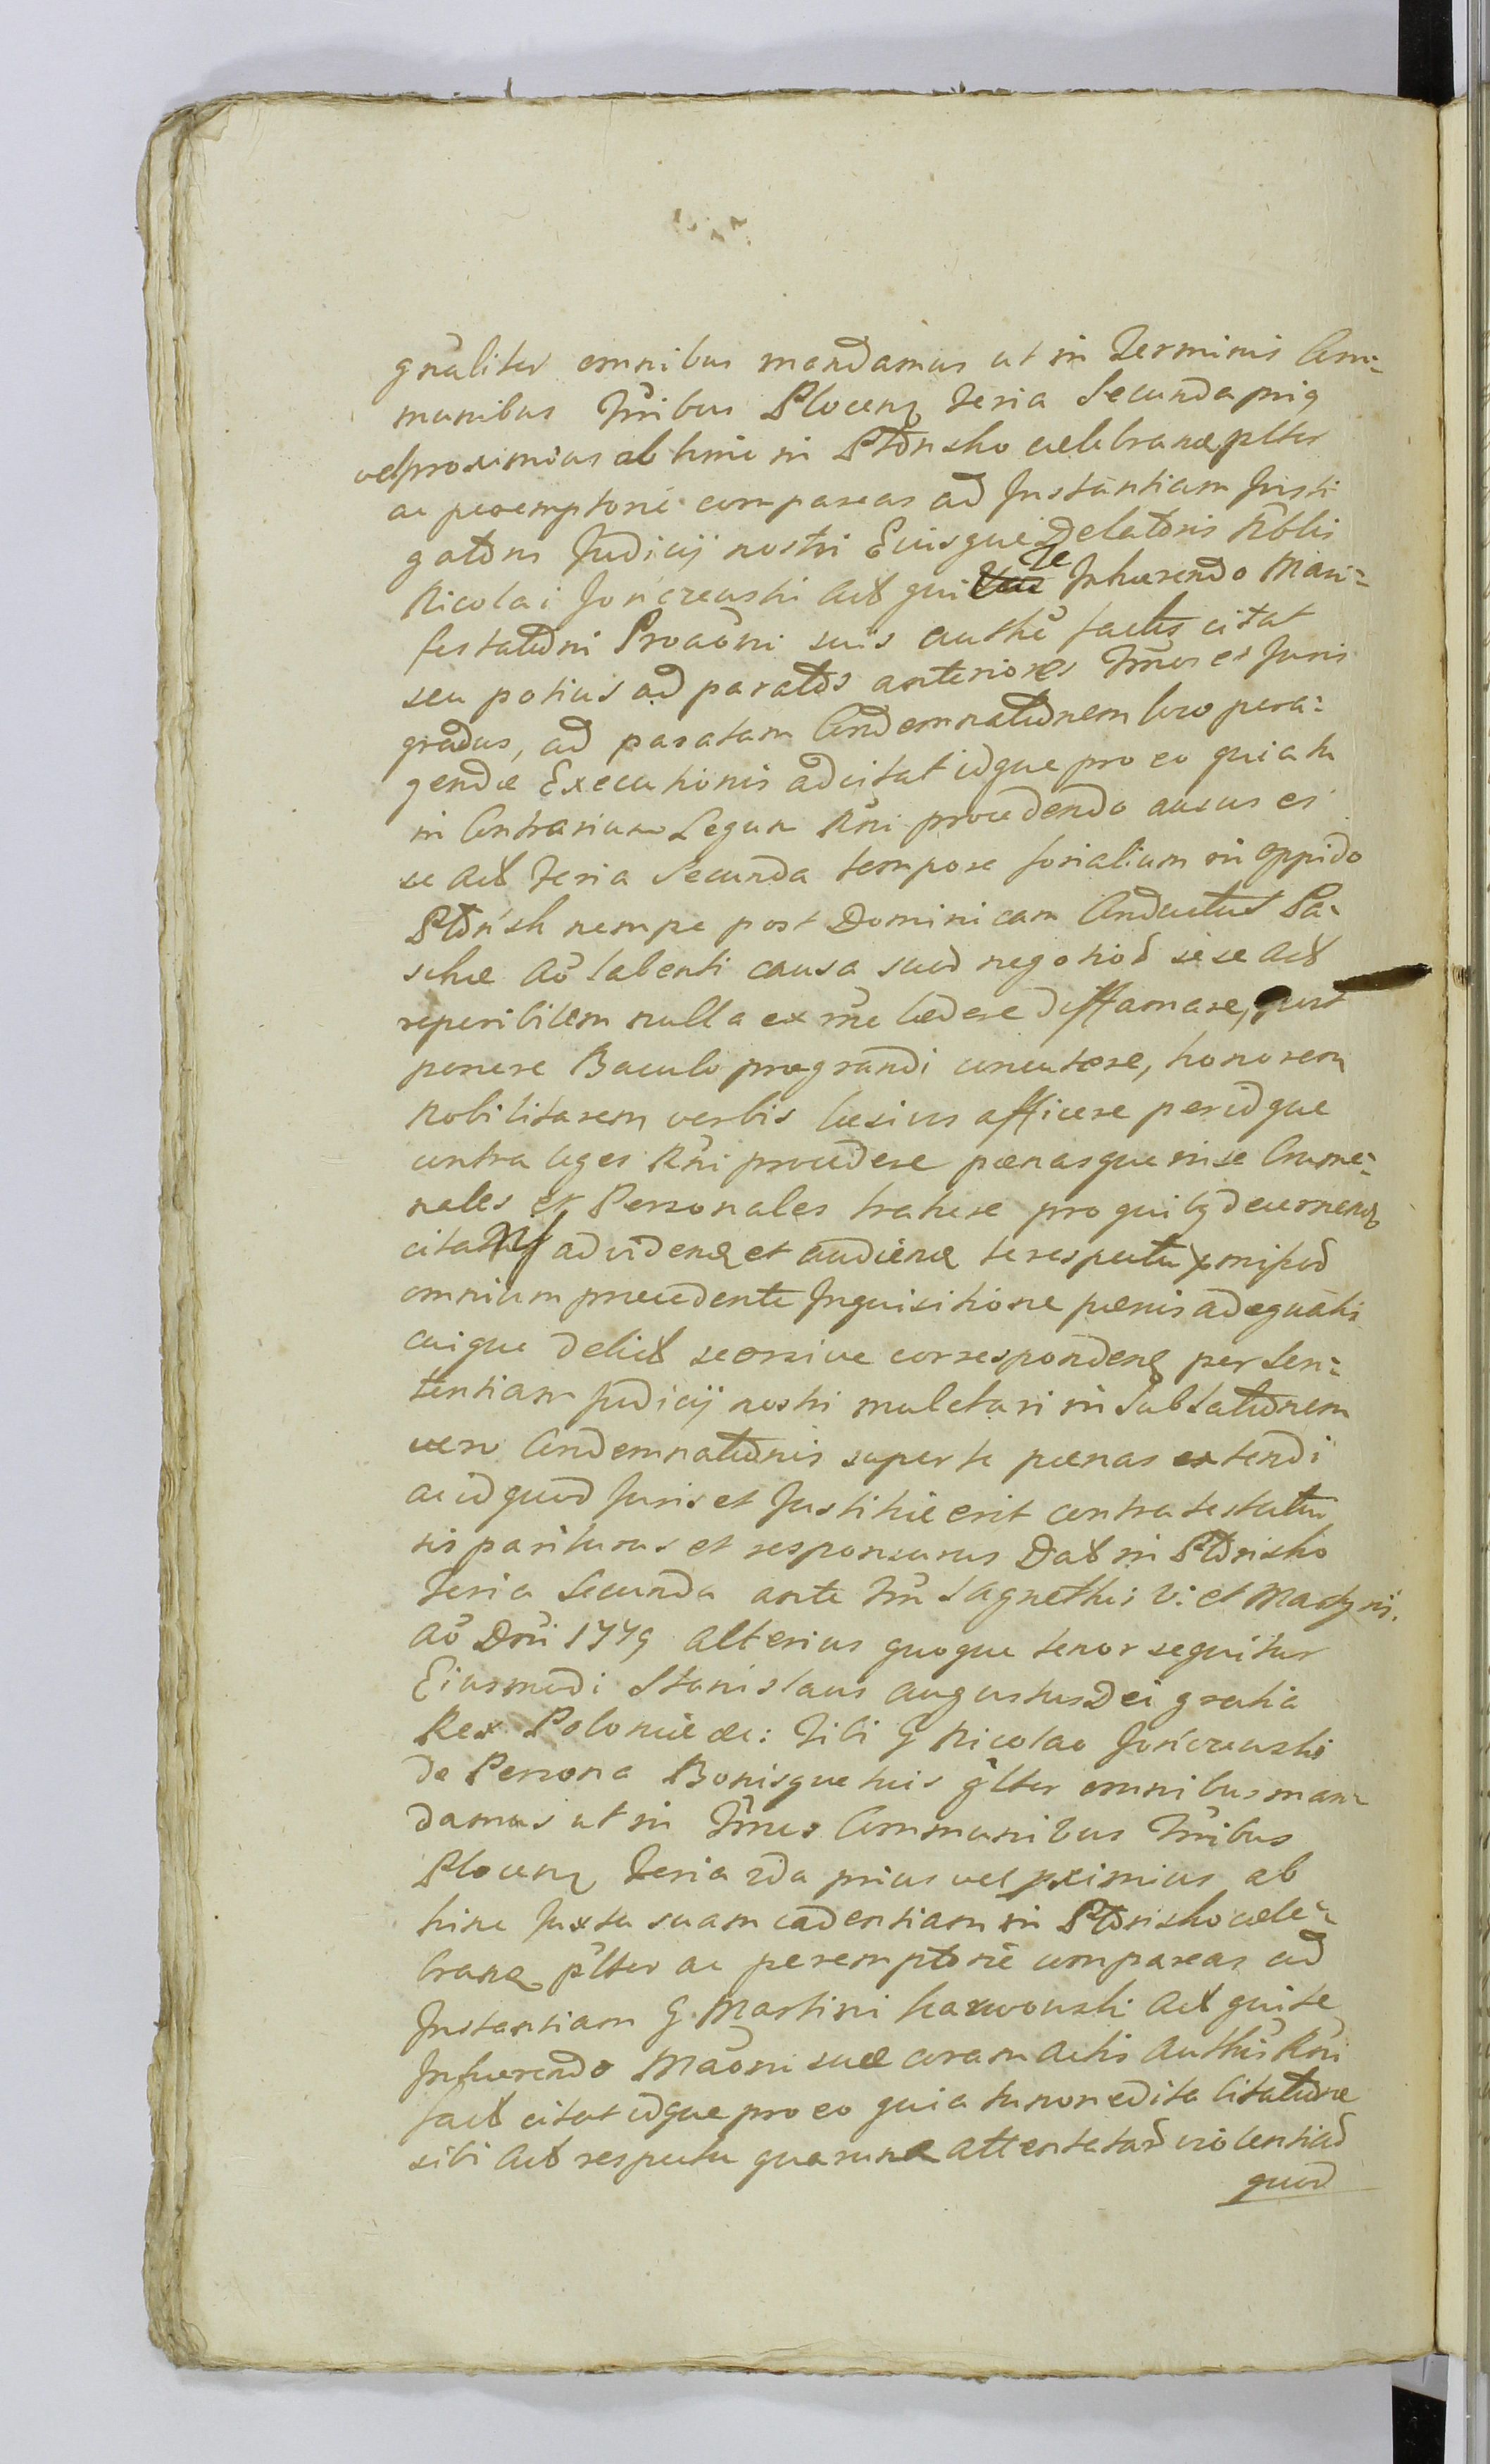 gnaliter omnibus mandamus ut in Terminis Com=
munibus Trribus Plocenz Feria Secunda priq
vel proximius ab hinc in Płońsko celebrane plter
ac peremptorie compareas ad Instantiam Insti
gatoris Judicij nostri Eiusque Delatoris Nblis
Nicolai Jończewski Act qui Te Inherendo Mani=
festationi Proaoni suis authē factis citat
seu potius ad paratos anteriores Trnos et Juris
gradus, ad paratam Condemnationem loco pera=
gendæ Executionis adcitat idque pro eo quia tu
in Contrarium Legum Rni procedendo ausus es
se Act Feria Secunda tempore forialium in oppido
Płońsk nempe post Dominicam Conductus Pa=
schæ Aō labenti causa suod negotiod sese Act
reperibilem nulla ex rne lædere diffamare, post
ponere Baculo prægrandi concutere, honorem
Nobilitarem verbis læsivis afficere peridque
contra leges Rni procedere pænasque in se Crimi=
nales et Personales trahere pro quibq decernenq
citatus ad videnq et audienq te respectu pmissod
omnium præcedente Inquisitione pænis adæquatis
cuique delict seorsive correspondenq per Sen=
tentiam Judicij nostri mulctari in Subsationem
vero Condemnationis super te pænas extendi
ac id quod Juris et Justitiæ erit contra te statui
sis pariturus et responsurus Dat in Płońsko
Feria Secunda ante Fm S Agnethis V: et Martyris.
Aō Dni 1779 Alterius quoque tenor sequitur
Eiusmodi Stanislaus Augustus Dei gratia
Rex Poloniæ &c: Tibi G Nicolao Jończewski
de Persona Bonisque tuis glter omnibus man=
damus ut in Trnis Communibus Trribus
Plocenz Feria 2da prius vel pximius ab
hinc Juxta suam cadentiam in Płońsko cele=
branq plter ac peremptorie compareas ad
Instantiam G. Martini Karwowski Act qui te
Inherendo Maōni suæ coram Actis Authis Rni
fact citat idque pro eo quia tu non edita Citatione
sibi Act respectu quarunq attentatad violentiad
quod